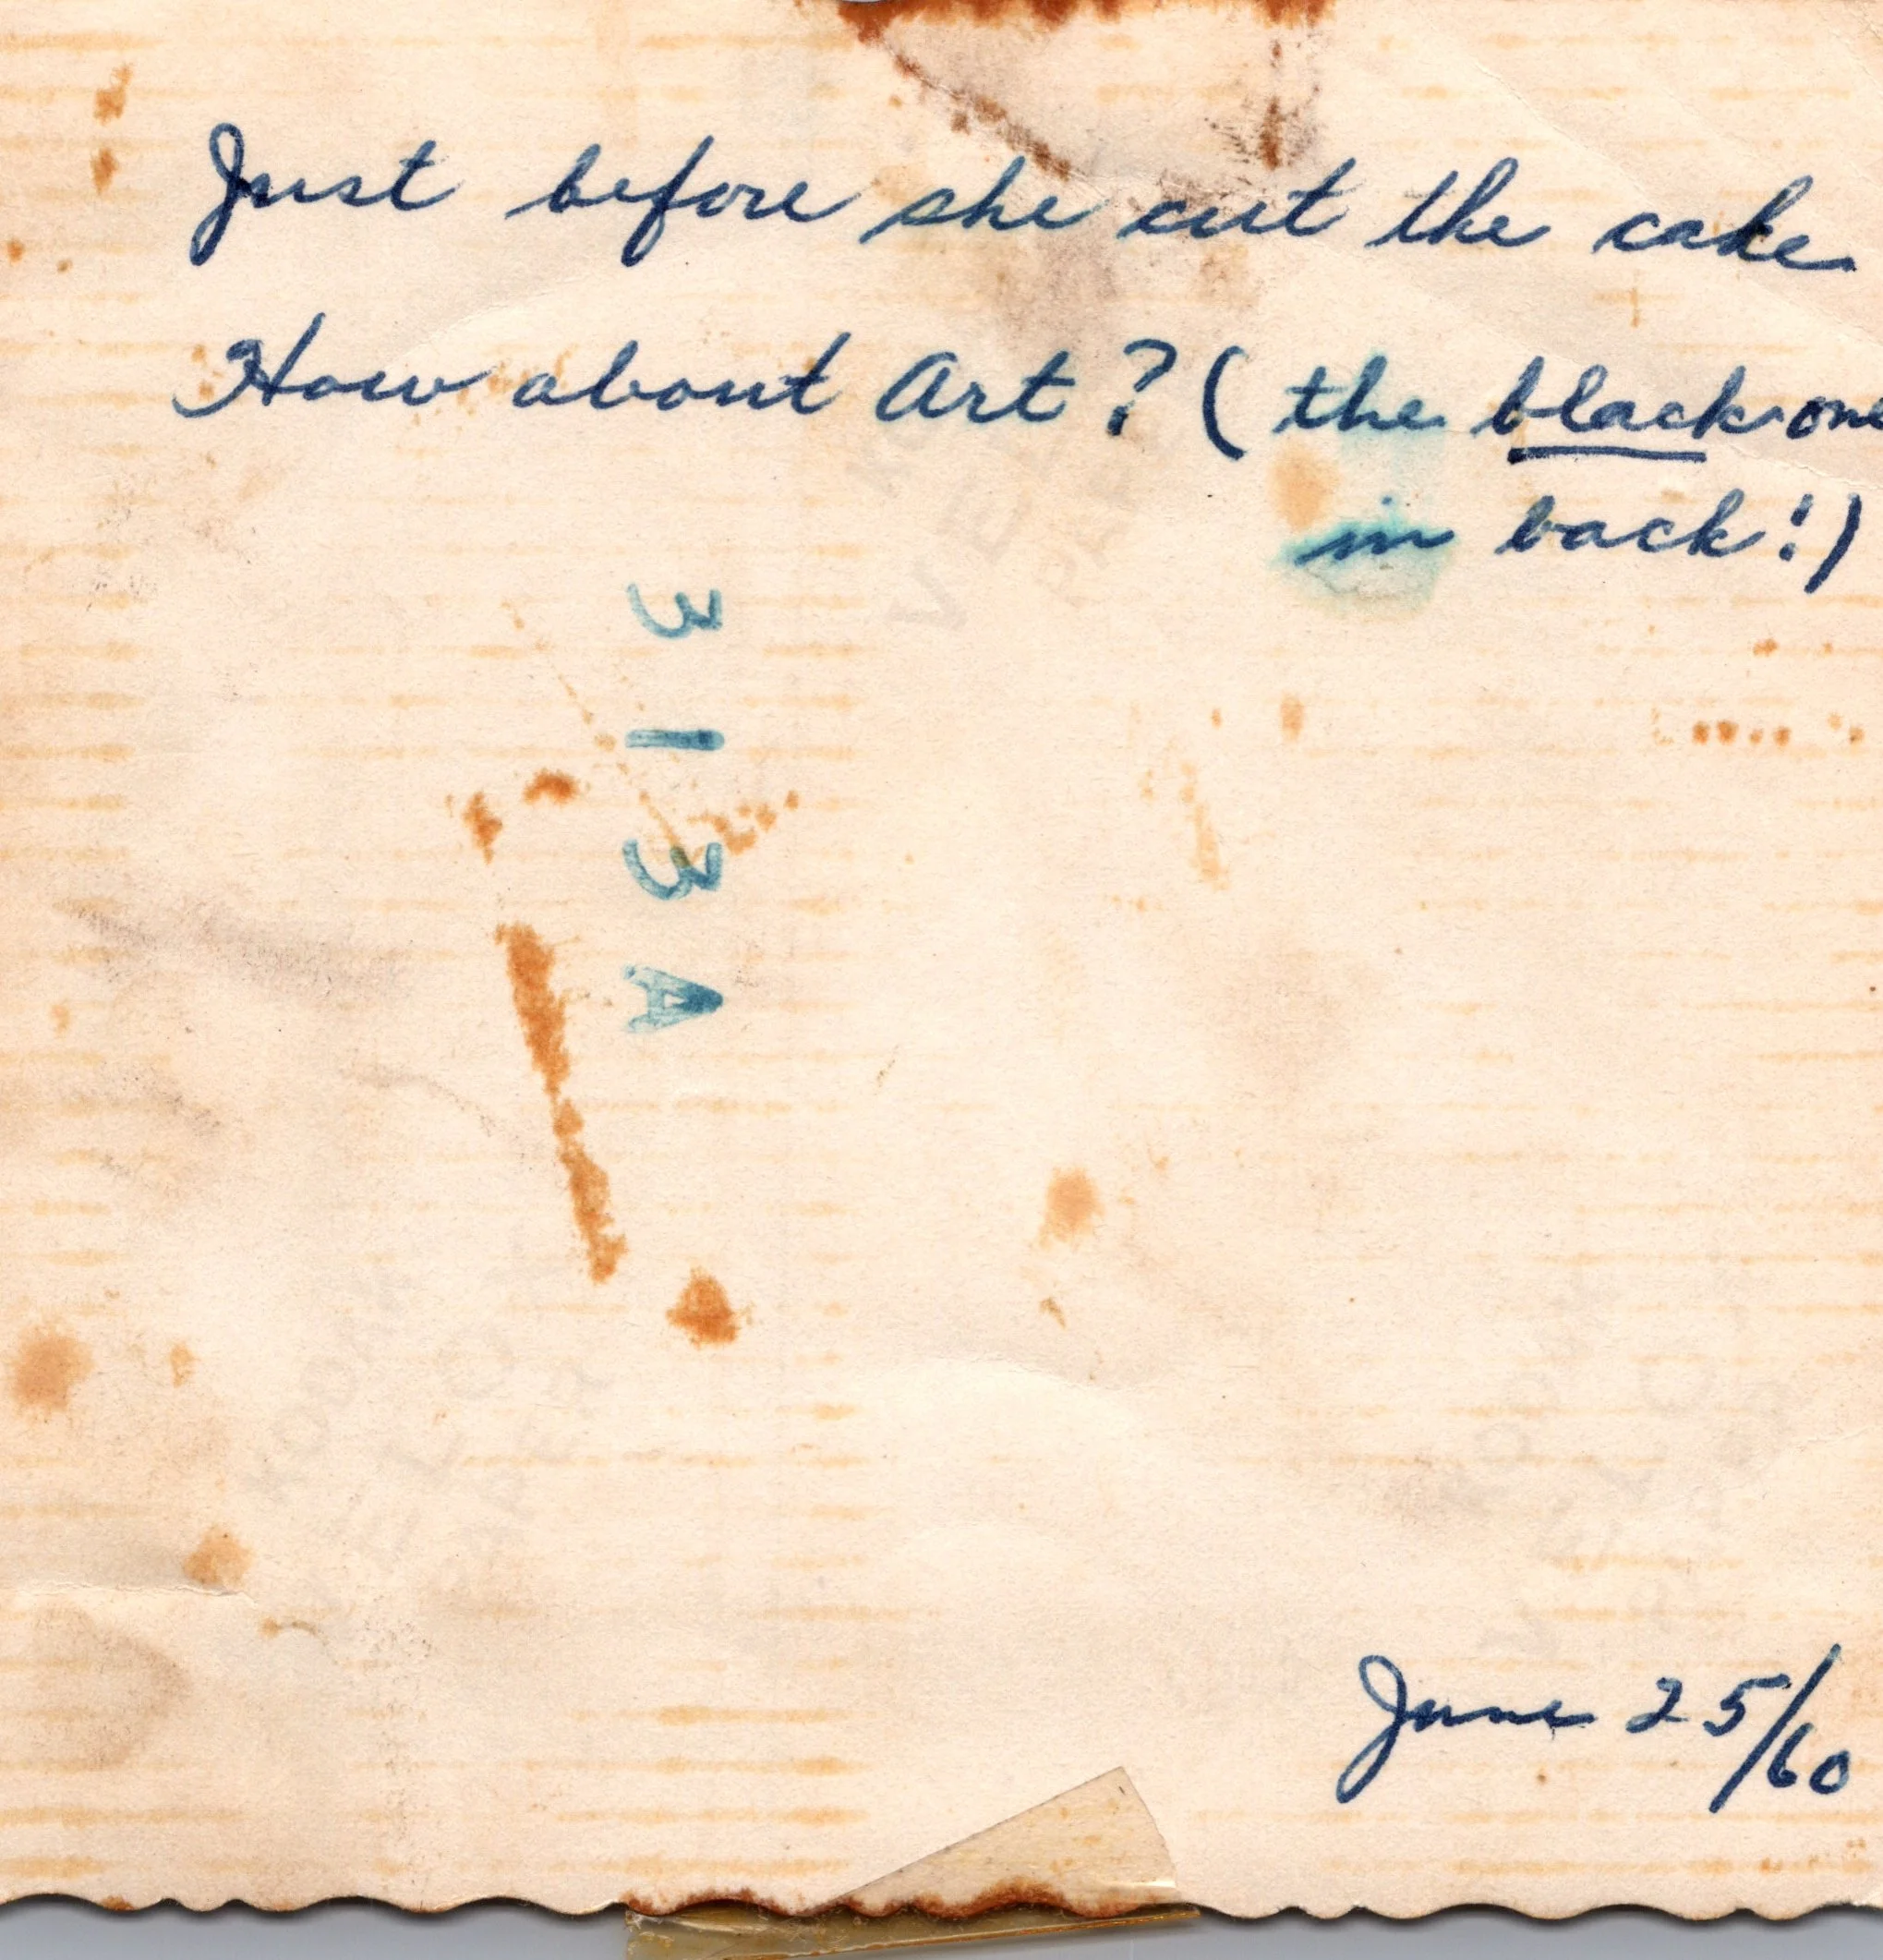 Just before she cut the cake
How about Art? (the black one
in back!)
313A
June 25/60